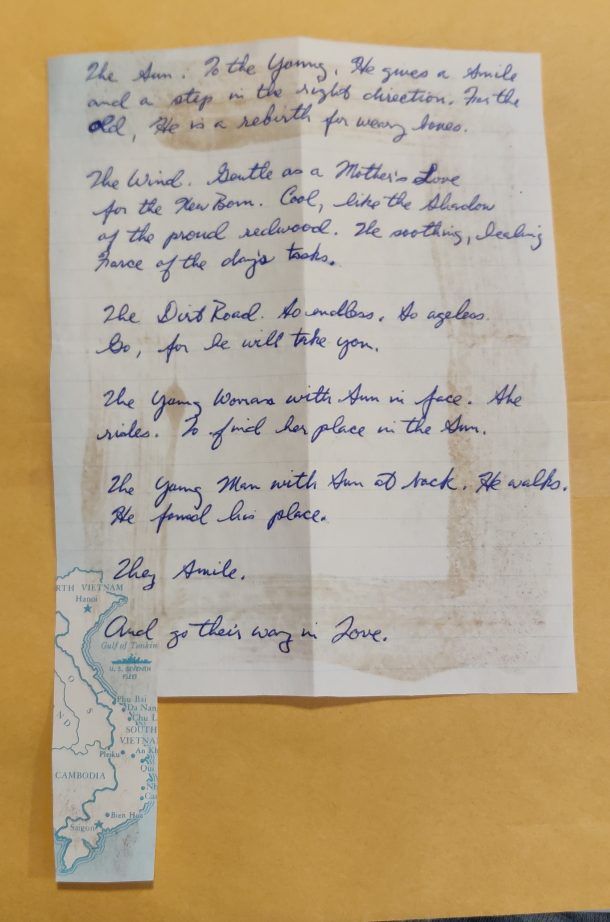 The Sun. To the Young, He gives a Smile
and a step in the right direction. For the
Old, He is a rebirth for weary bones.
The Wind. Gentle as a Mother's Love
for the New Born. Cool, like the Shadow
of the proud redwood. The soothing, healing
Farce of the day's tasks.
The Dirt Road. So endless. So ageless.
Go, for he will take you.
The Young Woman with Sun in face. She
rides. To find her place in the Sun.
The Young Man with Sun at back. He walks.
He found his place.
They Smile.
And go their way in Love.
RTH VIETNAM
Hanoi
Gulf of Tonkin
U.S. SEVENTH
FLEET
O S
N D
Phu Bai
Da Nan
Chu L
SOUTH
VIETNA
Pleiku
An Kh
Qui
CAMBODIA
Nh
Ca
Bien Hoa
Saigon